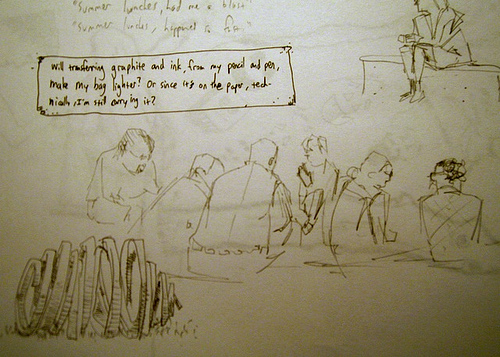 "Summer lunches, had me a blast"
"Summer lunches, happened so fast"
Will transferring graphite and ink, from my pencil and pen,
make my bag lighter? Or since it's on the paper, tech-
nically, I'm still carrying it?